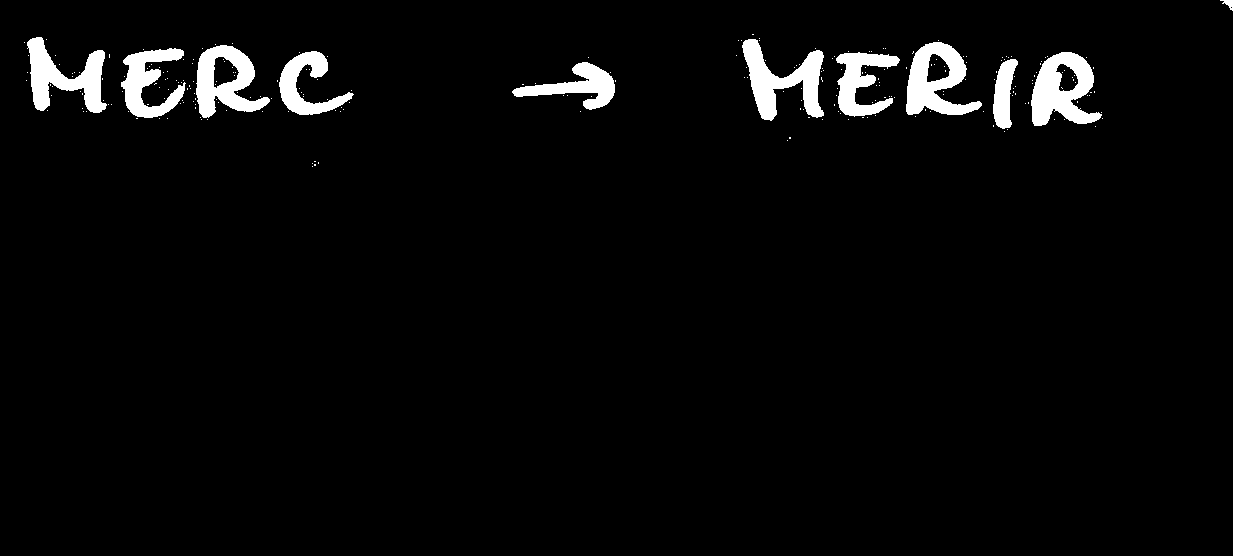 MERC → MERIR